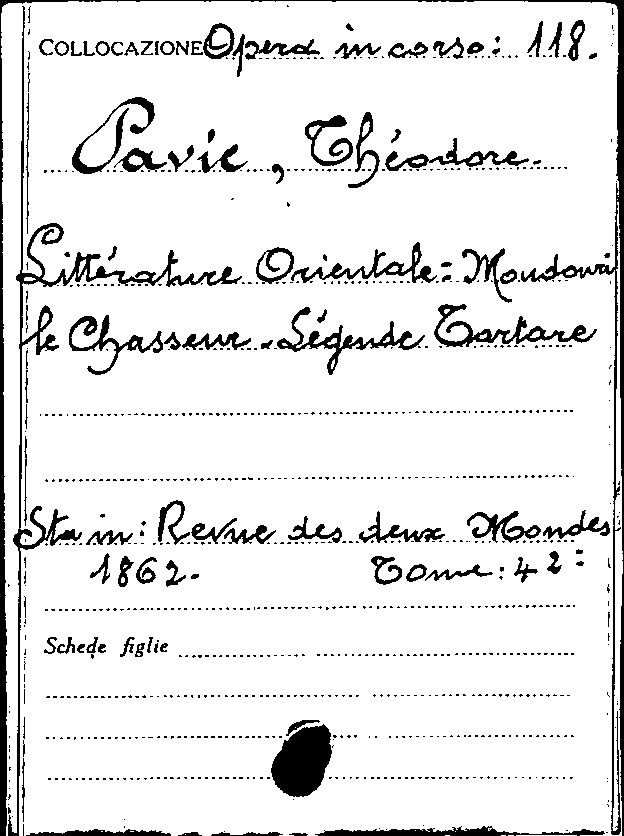 COLLOCAZIONE Opera in corso: 118.
Pavie, Théodore.
Littérature Orientale = Moudouri
le Chasseur - Légende Tartare
Sta in: Revue des deux Mondes
1862. Tome: 42=
Schede figlie